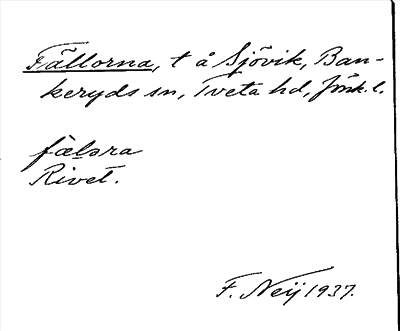 Fällorna, t å Sjövik, Ban-
keryds sn, Tveta hd, Jönk. l.
fæl̥ora
Rivet.
F. Neij 1937.